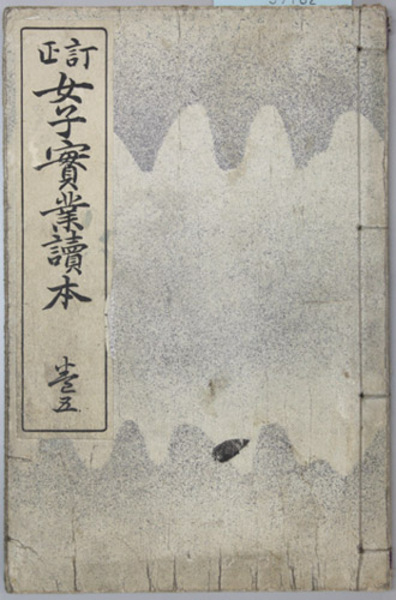 訂正
女子實業讀本
卷五